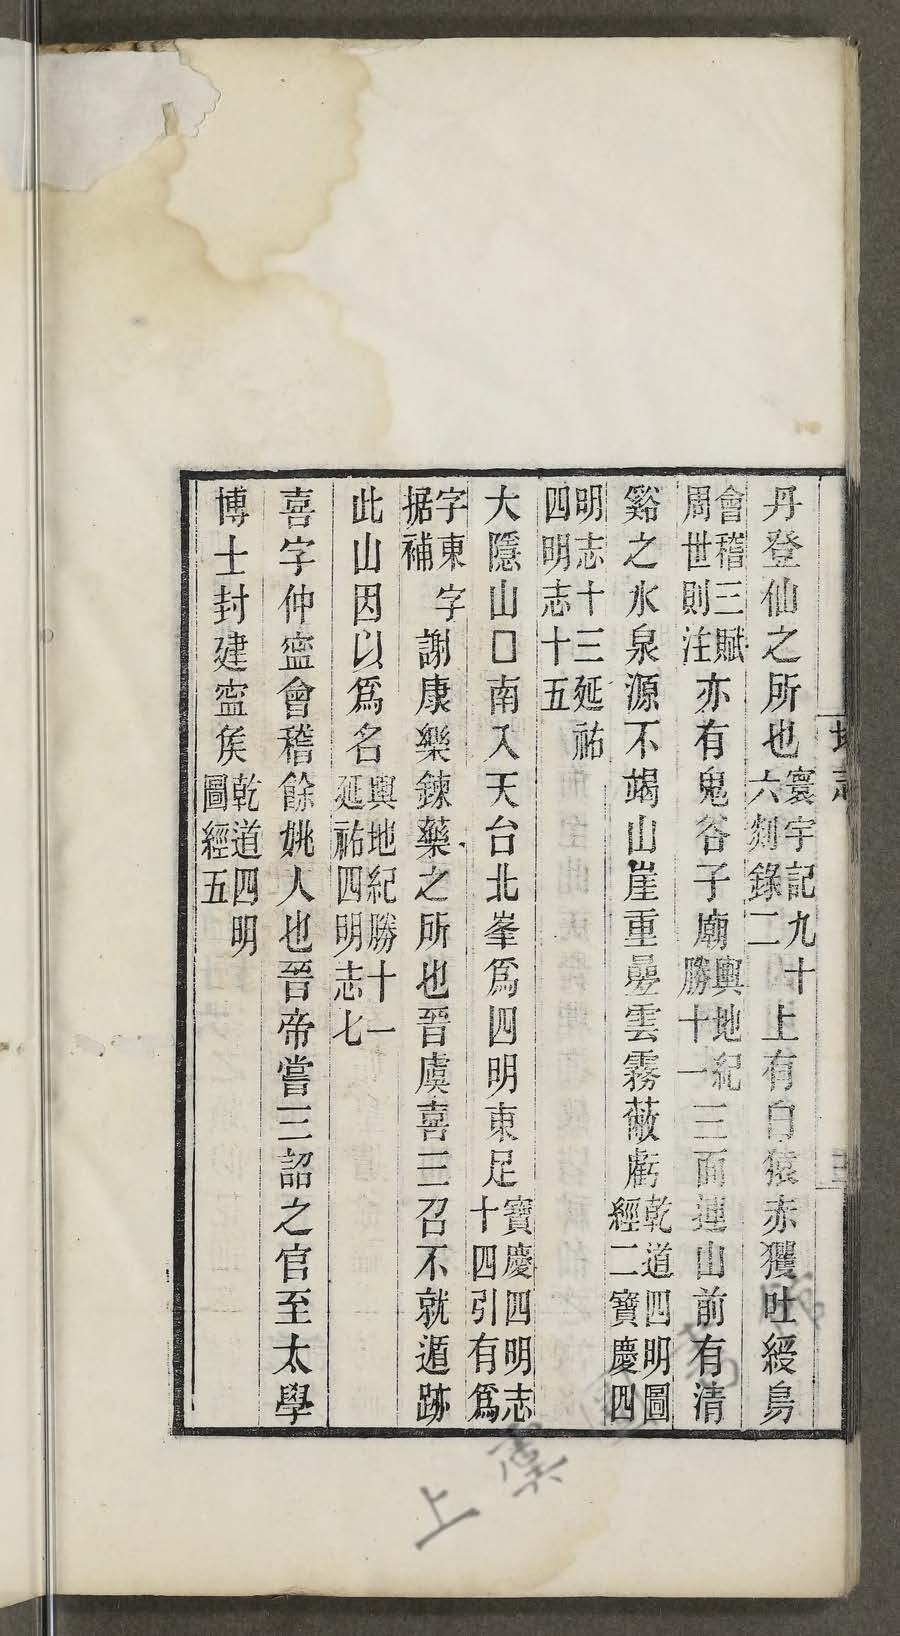 丹登仙之所也寰宇記九十六剡錄二上有白猿赤玃吐綬鳥
會稽三賦周世則注亦有鬼谷子廟輿地紀勝十一三面連山前有清
谿之水泉源不竭山崖重疊雲霧蔽虧乾道四明圖經二寶慶四
明志十三延祐四明志十五
大隱山口南入天台北峯爲四明東足寶慶四明志十四引有爲
字東字据補謝康樂鍊藥之所也晉虞喜三召不就遁跡
此山因以爲名輿地紀勝十一延祐四明志七
喜字仲寍會稽餘姚人也晉帝嘗三詔之官至太學
博士封建寍矦乾道四明圖經五
上虞